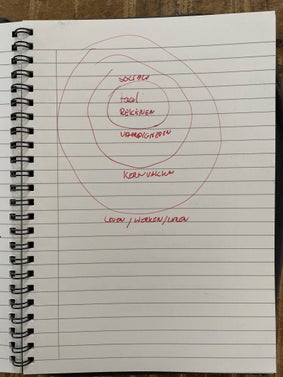 SOCIALE
taal
REKENEN
VAARDIGHEDEN
KERNVAKKEN
LEVEN / WERKEN / LEREN